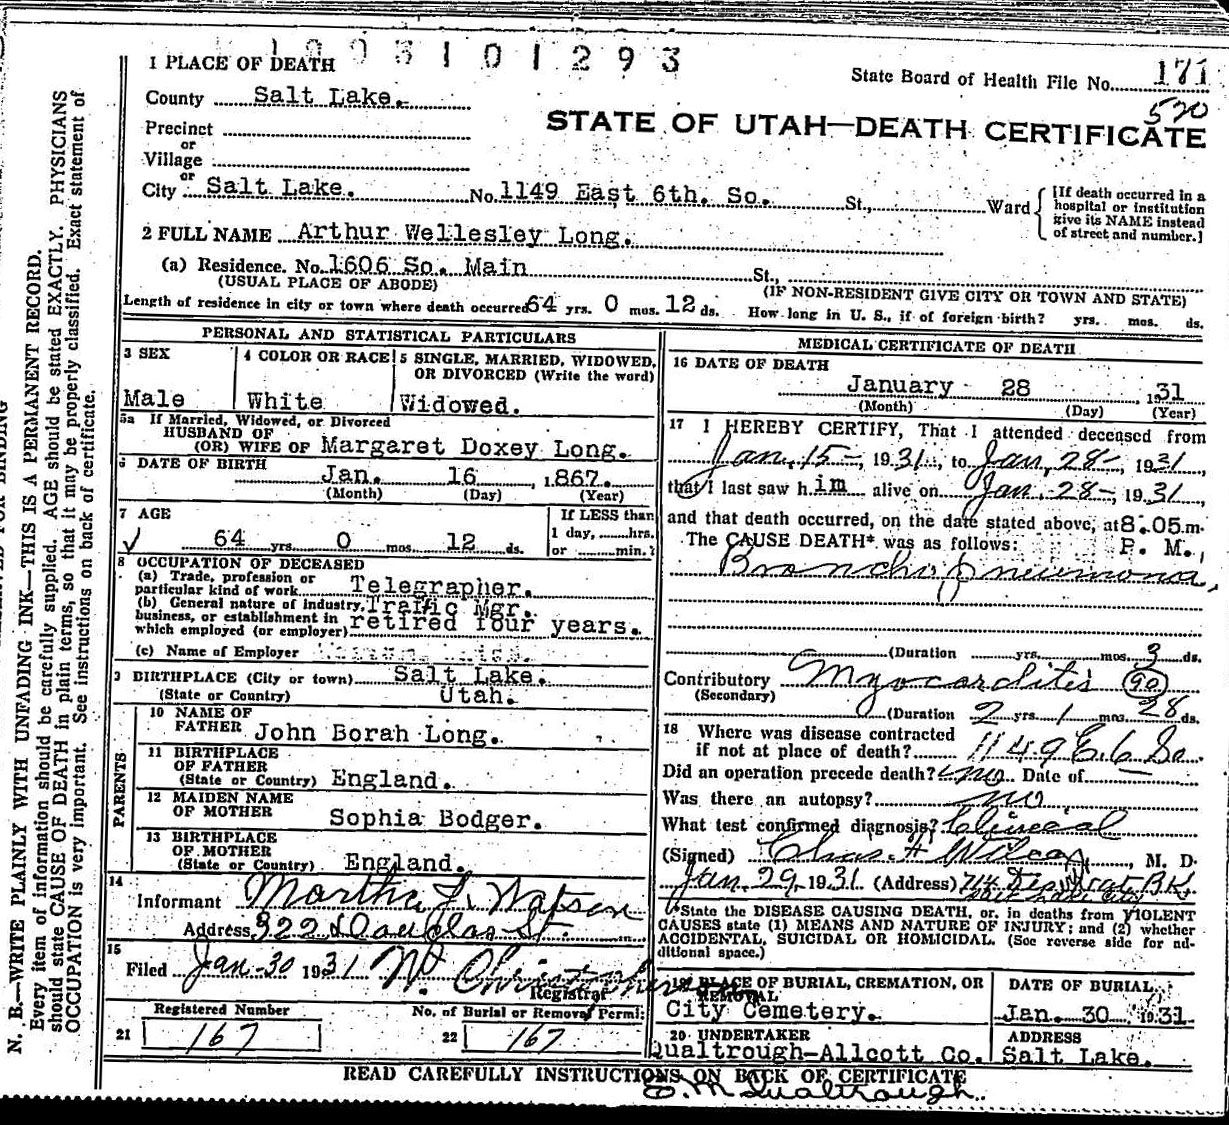 1 0 0 3 1 0 1 2 9 3
1 PLACE OF DEATH
State Board of Health File No. 171
520
County Salt Lake.
STATE OF UTAH—DEATH CERTIFICATE
Precinct
or
Village
or
City Salt Lake. No. 1149 East 6th. So. St., Ward
[If death occurred in a hospital or institution give its NAME instead of street and number.]
2 FULL NAME Arthur Wellesley Long.
(a) Residence. No. 1606 So. Main St.,
(USUAL PLACE OF ABODE) (IF NON-RESIDENT GIVE CITY OR TOWN AND STATE)
Length of residence in city or town where death occurred 64 yrs. 0 mos. 12 ds. How long in U. S., if of foreign birth? yrs. mos. ds.
PERSONAL AND STATISTICAL PARTICULARS
3 SEX
Male
4 COLOR OR RACE
White
5 SINGLE, MARRIED, WIDOWED,
OR DIVORCED (Write the word)
Widowed.
5a If Married, Widowed, or Divorced
HUSBAND OF
(OR) WIFE OF Margaret Doxey Long.
6 DATE OF BIRTH
Jan. 16, 1867.
(Month) (Day) (Year)
7 AGE
64 yrs. 0 mos. 12 ds.
If LESS than
1 day, hrs.
or min.?
8 OCCUPATION OF DECEASED
(a) Trade, profession or
particular kind of work Telegrapher.
(b) General nature of industry, Traffic Mgr.
business, or establishment in retired four years.
which employed (or employer)
(c) Name of Employer
9 BIRTHPLACE (City or town) Salt Lake.
(State or Country) Utah.
PARENTS
10 NAME OF
FATHER John Borah Long.
11 BIRTHPLACE
OF FATHER
(State or Country) England.
12 MAIDEN NAME
OF MOTHER Sophia Bodger.
13 BIRTHPLACE
OF MOTHER
(State or Country) England.
14
Informant Martha L. Watson
Address 322 Douglas St.
15
Filed Jan-30 1931
Registrar
Registered Number
21 167
No. of Burial or Removal Permit
22 167
MEDICAL CERTIFICATE OF DEATH
16 DATE OF DEATH
January 28, 1931
(Month) (Day) (Year)
17 I HEREBY CERTIFY, That I attended deceased from
Jan. 15-, 1931, to Jan. 28-, 1931,
that I last saw him alive on Jan. 28-, 1931,
and that death occurred, on the date stated above, at 8.05 m.
The CAUSE DEATH* was as follows: P. M.
Broncho pneumona,
(Duration yrs. mos. 3 ds.
Contributory Myocarditis 90
(Secondary)
(Duration 2 yrs. 1 mos. 28 ds.
18 Where was disease contracted
if not at place of death? 1149 E. 6 So.
Did an operation precede death? no Date of —
Was there an autopsy? no
What test confirmed diagnosis? Clinical
(Signed) Chas. F. Wilcox, M. D.
Jan. 29, 1931 (Address) 714
*State the DISEASE CAUSING DEATH, or, in deaths from VIOLENT
CAUSES state (1) MEANS AND NATURE OF INJURY; and (2) whether
ACCIDENTAL, SUICIDAL OR HOMICIDAL. (See reverse side for additional space.)
19 PLACE OF BURIAL, CREMATION, OR
REMOVAL
City Cemetery.
DATE OF BURIAL
Jan. 30, 1931.
20 UNDERTAKER
Qualtrough-Allcott Co.
ADDRESS
Salt Lake.
READ CAREFULLY INSTRUCTIONS ON BACK OF CERTIFICATE
M Qualtrough.
N. B.—WRITE PLAINLY WITH UNFADING INK—THIS IS A PERMANENT RECORD.
Every item of information should be carefully supplied. AGE should be stated EXACTLY. PHYSICIANS
should state CAUSE OF DEATH in plain terms, so that it may be properly classified. Exact statement of
OCCUPATION is very important. See instructions on back of certificate.